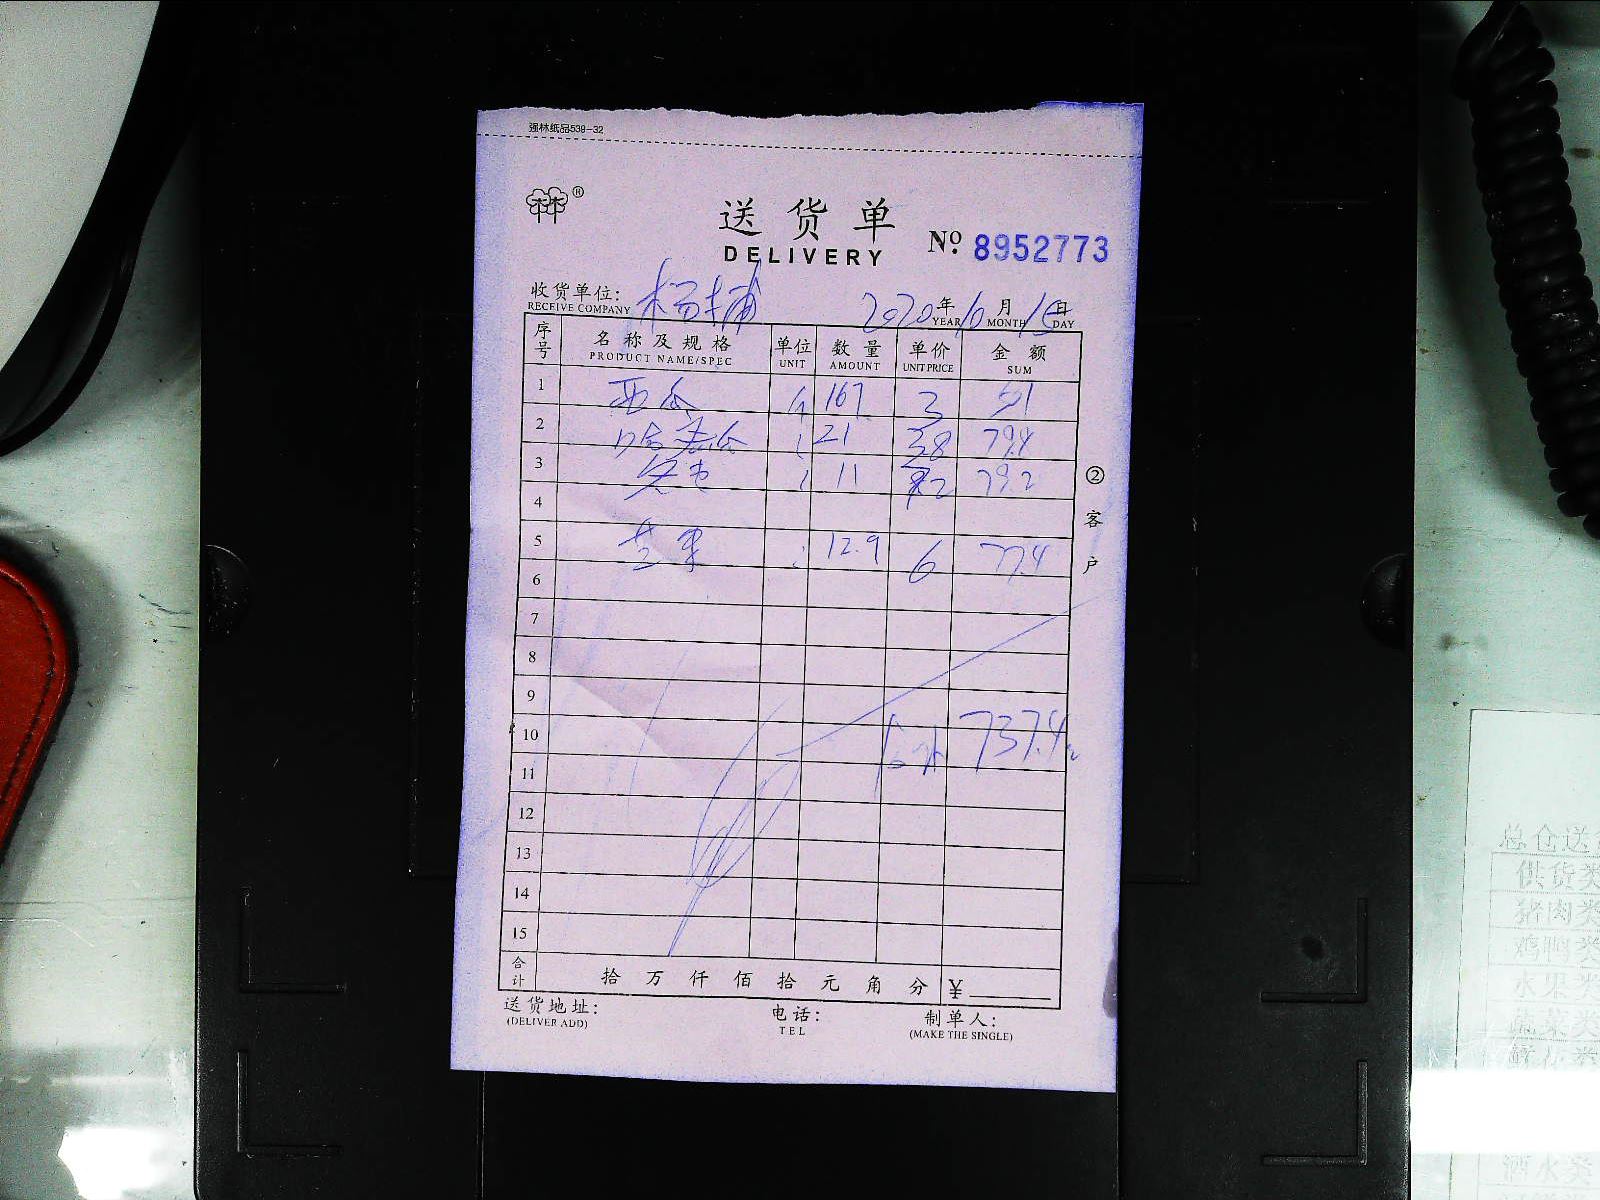 强林纸品539-32
送货单
DELIVERY
Nº 8952773
收货单位: 杨埔 2020年10月15日
RECEIVE COMPANY YEAR MONTH DAY
序号 名称及规格 单位 数量 单价 金额
PRODUCT NAME/SPEC UNIT AMOUNT UNIT PRICE SUM
1 西瓜 167 3 501
2 哈密瓜 21 3.8 79.8
3 11 7.2 79.2
4
5 芒果 12.9 6 77.4
6
7
8
9
10 合计 737.4
11
12
13
14
15
合计 拾 万 仟 佰 拾 元 角 分 ¥
送货地址: 电话: 制单人:
(DELIVER ADD) TEL (MAKE THE SINGLE)
②客户
总仓送
供货类
猪肉类
鸡鸭类
水果类
蔬菜类
酒水类